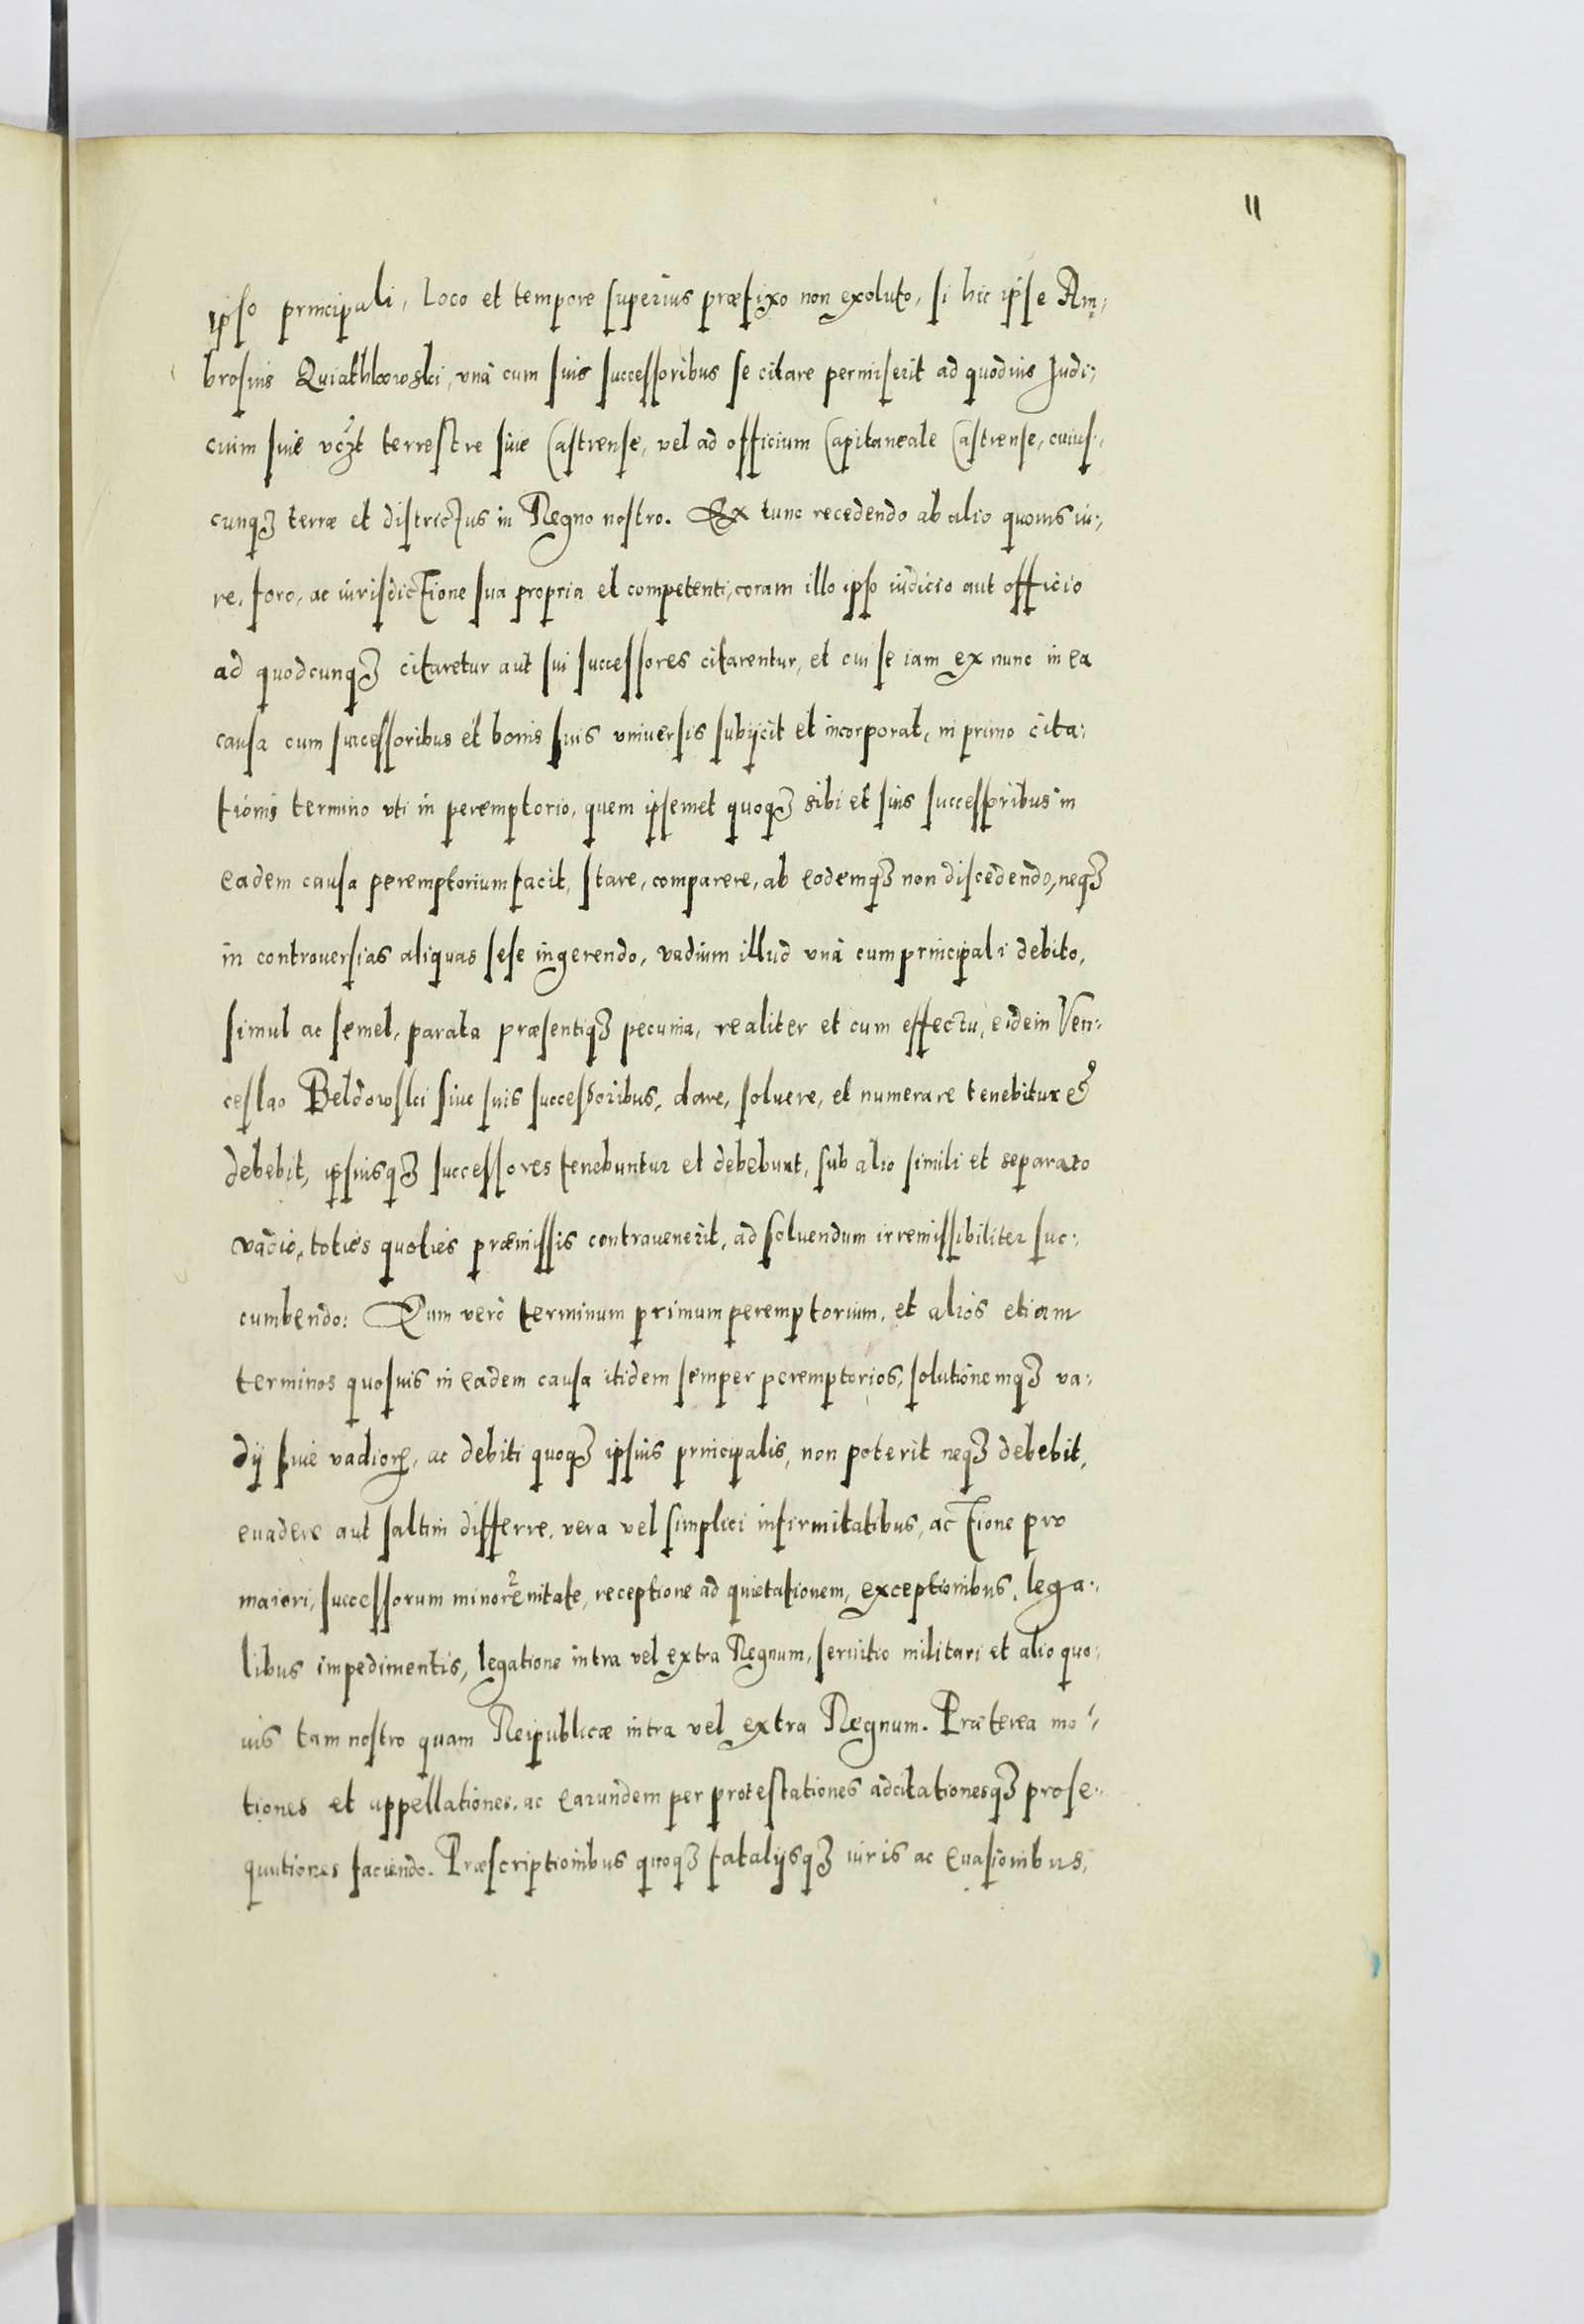 11
ipso principali, loco et tempore superius præfixo non exoluto, si hic ipse Am:
brosius Quiathkowski, vnà cum suis successoribus se citare permiserit ad quoduis Judi:
cium siue vczt terrestre siue Castrense, vel ad officium Capitaneale Castrense, cuius:
cunqȝ terræ et districtus in Regno nostro. Ex tunc recedendo ab alio quouis iu:
re, foro, ac iurisdictione sua propria et competenti, coram illo ipso iudicio aut officio
ad quodcunqȝ citaretur aut sui successores citarentur, et cui se iam ex nunc in ea
causa cum successoribus et bonis suis vniuersis subijcit et incorporat, in primo cita:
tionis termino vti in peremptorio, quem ipsemet quoqȝ sibi et suis successoribus in
eadem causa peremptorium facit, stare, comparere, ab eodemqȝ non discedendo, neqȝ
in controuersias aliquas sese ingerendo, vadium illud vnà cum principali debito,
simul ac semel, parata præsentiqȝ pecunia, realiter et cum effectu, eidem Ven:
ceslao Beldowski siue suis successoribus, dare, soluere, et numerare tenebitur et
debebit, ipsiusqȝ successores tenebuntur et debebunt, sub alio simili et separato
vadio, toties quoties præmissis contrauenerit, ad soluendum irremissibiliter suc:
cumbendo: Eum verò terminum primum peremptorium, et alios etiam
terminos quosuis in eadem causa itidem semper peremptorios, solutionemqȝ va:
dij siue vadioꝝ, ac debiti quoqȝ ipsius principalis, non poterit neqȝ debebit,
euadere aut saltim differre, vera vel simplici infirmitatibus, actione pro
maiori, successorum minorennitate, receptione ad quietationem, exceptionibus, lega:
libus impedimentis, legatione intra vel extra Regnum, seruitio militari et alio quo:
uis tam nostro quam Reipublicæ intra vel extra Regnum. Præterea mo:
tiones et appellationes, ac earundem per protestationes adcitationesqȝ prose:
quutiones faciendo. Præscriptionibus quoqȝ fatalijsqȝ iuris ac euasionibus,